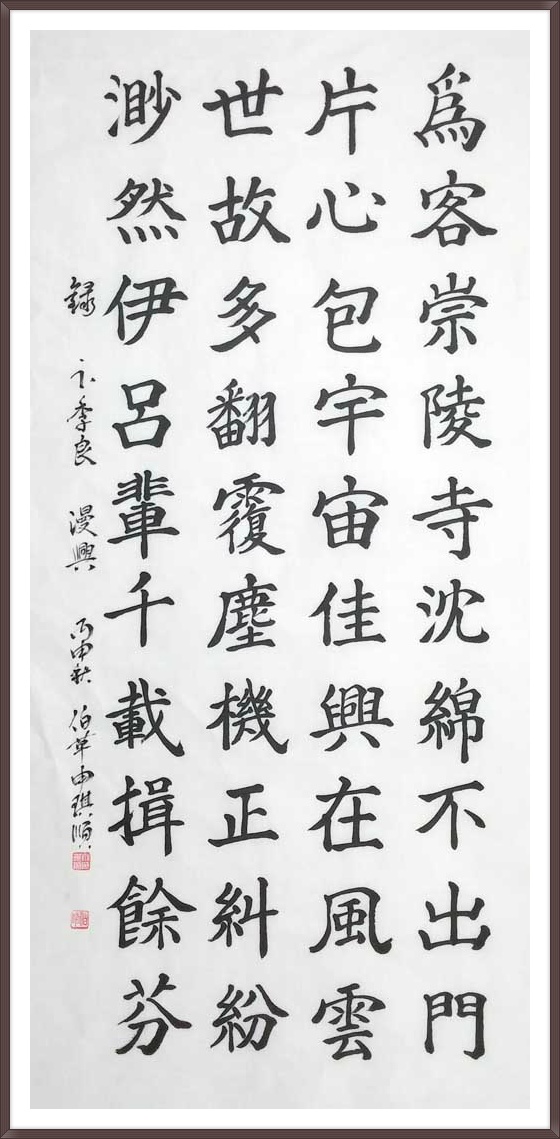 爲客崇陵寺沈綿不出門
片心包宇宙佳興在風雲
世故多翻覆塵機正糾紛
渺然伊呂輩千載揖餘芬
錄 卞季良 漫興 丙申秋 伯 琪順